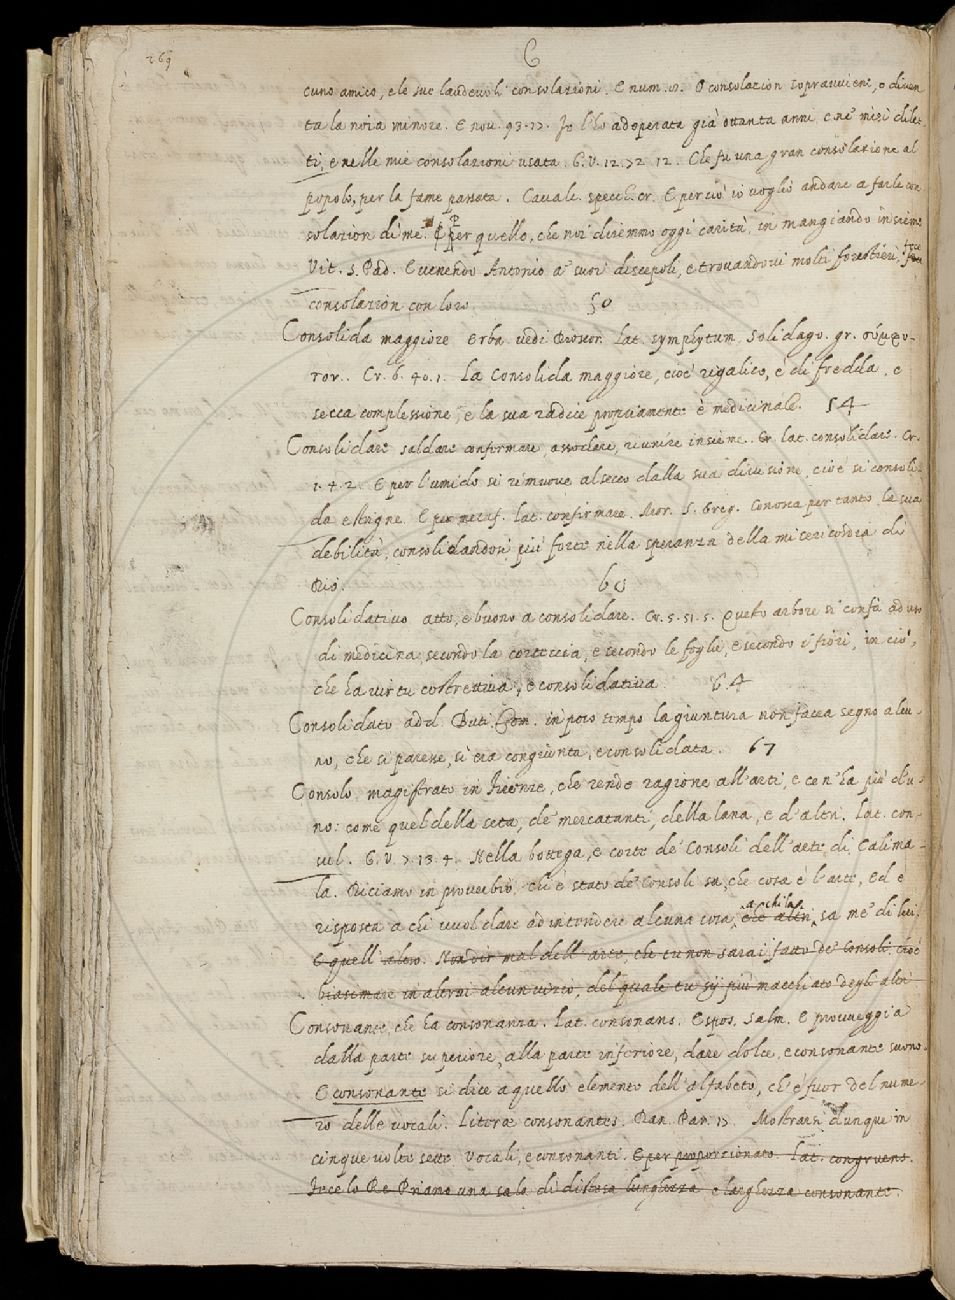 269
C
cuno amico, e le sue laudevoli consolazioni. E num. 11. O consolazion sopravviene, o diven
ta la noia minore. E nov. 93. 12. Io l'ho adoperata già ottanta anni, e ne' miei dilet
ti, e nelle mie consolazioni usata. G.V. 12. 72. 12. Che fu una gran consolazione al
popolo, per la fame passata. Cavalc. specch. cr. E perciò io voglio andare a farle con
solazion di me. Per quello, che noi diremmo oggi carità, in mangiando insieme
Vit. S. Pad. E venendo Antonio a' suoi discepoli, e trovandovi molti forestieri, fece
consolazion con loro. 50
Consolida maggiore erba. vedi Dioscor. Lat. symphytum, solidago. gr. σύμφυ-
τον. Cr. 6. 40. 1. La Consolida maggiore, cioè rigalico, è di fredda, e
secca complessione, e la sua radice propriamente è medicinale. 54
Consolidare saldare confirmare, assodare, riunire insieme. lat. consolidare. Cr.
1. 4. 2. E per l'umido si rimuove al secco dalla sua divisione, cioè si consoli-
da e strigne. E per metaf. Lat. confirmare. Mor. S. Greg. Conosca per tanto la sua
debilità, consolidandosi più forte nella speranza della misericordia di
Dio. 60
Consolidativo atto, e buono a consolidare. Cr. 5. 51. 5. Questo arbore si confà ad uso
di medicina, secondo la corteccia, e secondo le foglie, e secondo i fiori, in ciò,
che ha virtu costrettiva, e consolidativa 64
Consolidato add. Buti. Com. in poco tempo la giuntura non facea segno alcu
no, che si paresse, sì era congiunta, e consolidata. 67
Consolo magistrato in Firenze, che rende ragione all'arti, e ce n'ha più d'u-
no: come quel della seta, de' mercatanti, della lana, e d'altri. Lat. con-
sul. G.V. 7. 13. 4. Nella bottega, e corte de' Consoli dell'arte di Calima-
la. Diciamo in proverbio, chi è stato de' Consoli sa, che cosa è l'arte, ed è
risposta a chi vuol dare ad intendere alcuna cosa, a chi la che altri sa me' di lui.
E quell'altro. Non dir mal dell'arte, che tu non sarai fatto de' Consoli. cioè
biasimare in altrui alcun vizio, del quale tu sij più macchiato degli altri
Consonante, che ha consonanza. Lat. consonans. Espos. Salm. E provveggia
dalla parte superiore, alla parte inferiore, dare dolce, e consonante suono.
E consonante si dice a quello elemento dell'alfabeto, ch'è fuor del nume-
ro delle vocali. Literæ consonantes. Dan. Par. 17. Mostrarsi dunque in
cinque volte sette vocali, e consonanti. E per proporzionato. Lat. congruens.
Fece lo Re Priamo una sala di distesa lunghezza e larghezza consonante.